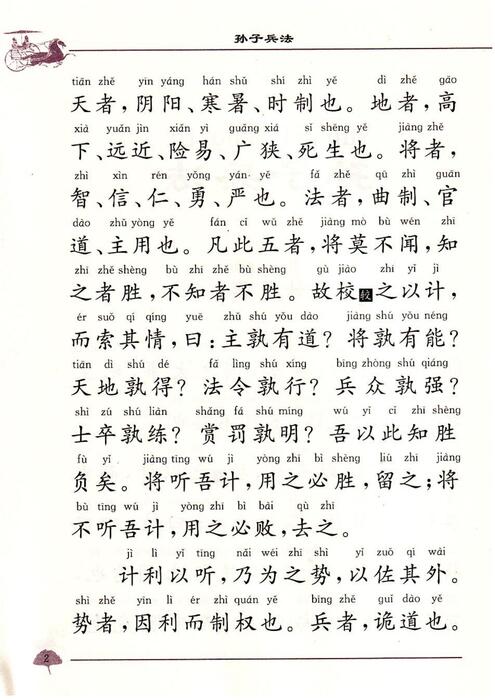 孙子兵法
tiān zhě yīn yáng hán shǔ shí zhì yě dì zhě gāo
天者，阴阳、寒暑、时制也。地者，高
xià yuǎn jìn xiǎn yì guǎng xiá sǐ shēng yě jiàng zhě
下、远近、险易、广狭、死生也。将者，
zhì xìn rén yǒng yán yě fǎ zhě qū zhì guān
智、信、仁、勇、严也。法者，曲制、官
dào zhǔ yòng yě fán cǐ wǔ zhě jiàng mò bù wén zhī
道、主用也。凡此五者，将莫不闻，知
zhī zhě shèng bù zhī zhě bù shèng gù jiào zhī yǐ jì
之者胜，不知者不胜。故校较之以计，
ér suǒ qí qíng yuē zhǔ shú yǒu dào jiàng shú yǒu néng
而索其情，曰：主孰有道？将孰有能？
tiān dì shú dé fǎ lìng shú xíng bīng zhòng shú qiáng
天地孰得？法令孰行？兵众孰强？
shì zú shú liàn shǎng fá shú míng wú yǐ cǐ zhī shèng
士卒孰练？赏罚孰明？吾以此知胜
fù yǐ jiàng tīng wú jì yòng zhī bì shèng liú zhī jiàng
负矣。将听吾计，用之必胜，留之；将
bù tīng wú jì yòng zhī bì bài qù zhī
不听吾计，用之必败，去之。
jì lì yǐ tīng nǎi wéi zhī shì yǐ zuǒ qí wài
计利以听，乃为之势，以佐其外。
shì zhě yīn lì ér zhì quán yě bīng zhě guǐ dào yě
势者，因利而制权也。兵者，诡道也。
2